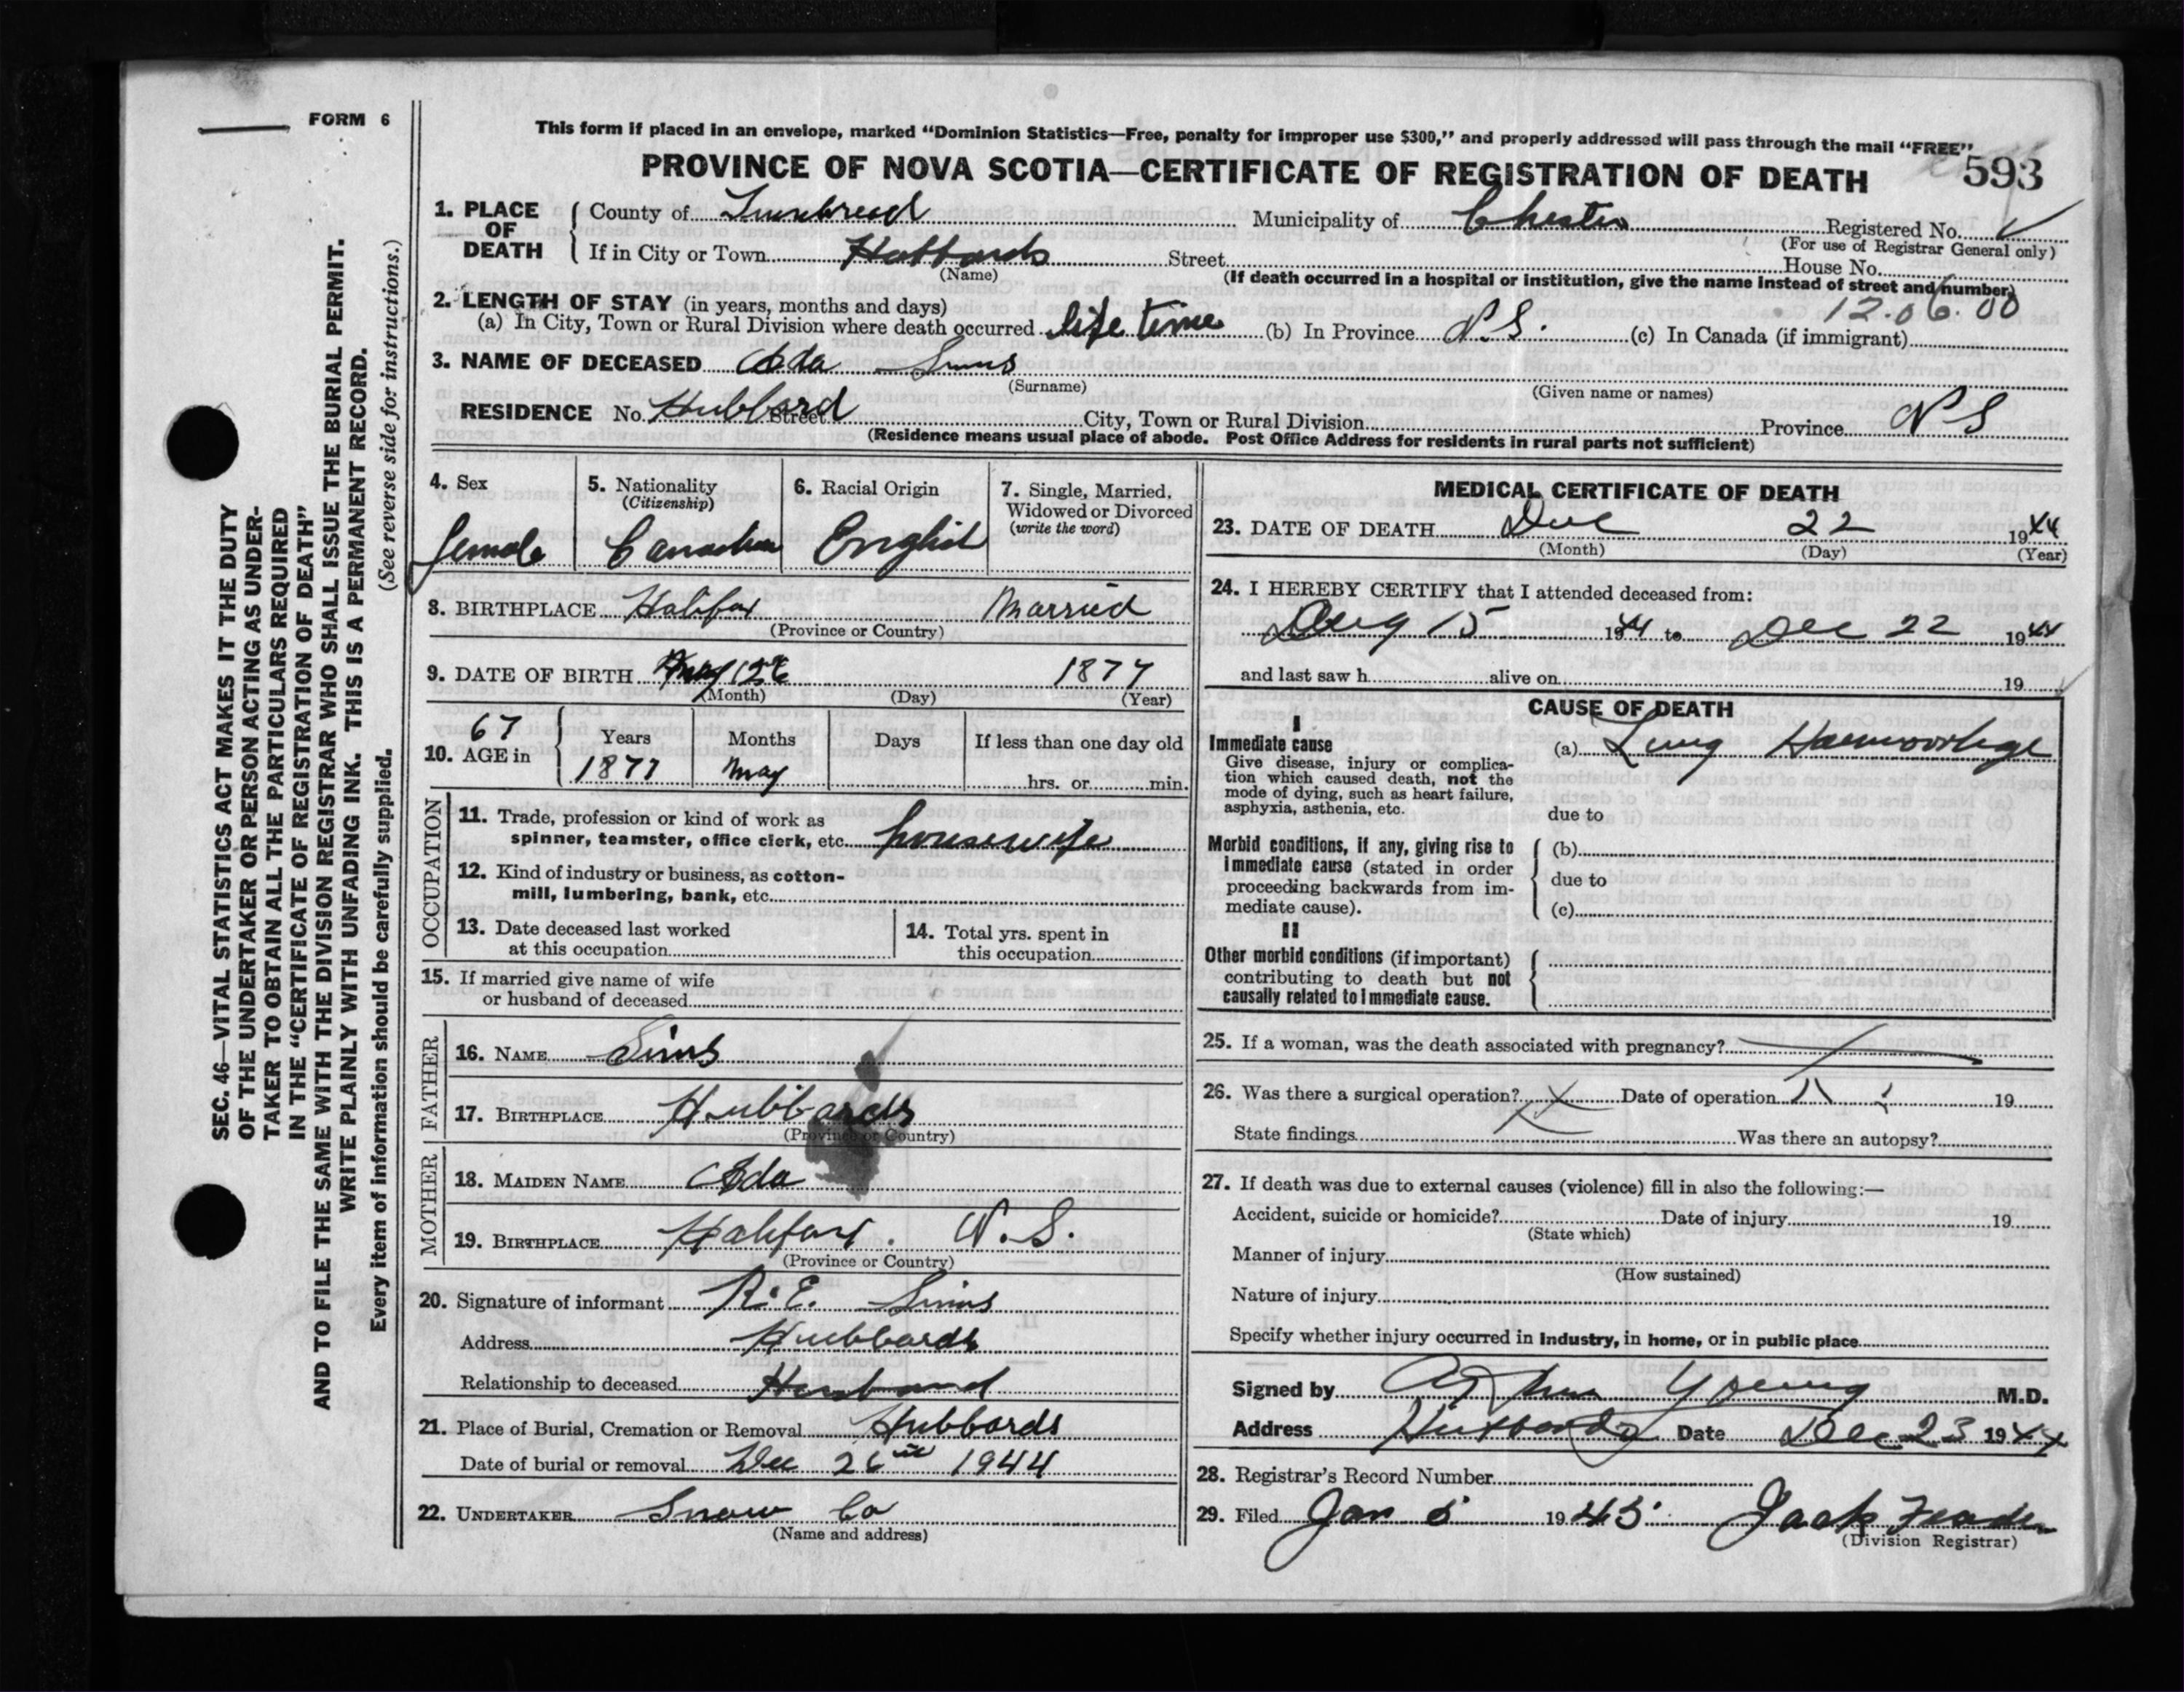 FORM 6
This form if placed in an envelope, marked "Dominion Statistics—Free, penalty for improper use $300," and properly addressed will pass through the mail "FREE"
PROVINCE OF NOVA SCOTIA—CERTIFICATE OF REGISTRATION OF DEATH 593
1. PLACE OF DEATH
County of Municipality of Chester Registered No.
(For use of Registrar General only)
If in City or Town Hubbards Street House No.
(Name) (If death occurred in a hospital or institution, give the name instead of street and number)
2. LENGTH OF STAY (in years, months and days) 12.06.00
(a) In City, Town or Rural Division where death occurred life time (b) In Province N.S. (c) In Canada (if immigrant)
3. NAME OF DECEASED Ada Sims
(Surname) (Given name or names)
RESIDENCE No. Hubbard Street City, Town or Rural Division Province N S
(Residence means usual place of abode. Post Office Address for residents in rural parts not sufficient)
4. Sex
female
5. Nationality
(Citizenship)
Canadian
6. Racial Origin
English
7. Single, Married, Widowed or Divorced
(write the word)
Married
8. BIRTHPLACE Halifax
(Province or Country)
9. DATE OF BIRTH May 12 1877
(Month) (Day) (Year)
10. AGE in 67 Years Months Days If less than one day old
1877 May hrs. or min.
OCCUPATION
11. Trade, profession or kind of work as
spinner, teamster, office clerk, etc. housewife
12. Kind of industry or business, as cotton-
mill, lumbering, bank, etc.
13. Date deceased last worked
at this occupation
14. Total yrs. spent in
this occupation
15. If married give name of wife
or husband of deceased
FATHER
16. NAME Sims
17. BIRTHPLACE Hubbards
(Province or Country)
MOTHER
18. MAIDEN NAME Ada
19. BIRTHPLACE Halifax. N.S.
(Province or Country)
20. Signature of informant R.E. Sims
Address Hubbards
Relationship to deceased Husband
21. Place of Burial, Cremation or Removal Hubbards
Date of burial or removal Dec 26 1944
22. UNDERTAKER Snow Co
(Name and address)
MEDICAL CERTIFICATE OF DEATH
23. DATE OF DEATH Dec 22 1944
(Month) (Day) (Year)
24. I HEREBY CERTIFY that I attended deceased from:
15 1944 to Dec 22 1944
and last saw h alive on 19
CAUSE OF DEATH
I
Immediate cause (a) Lung Haemorrhage
Give disease, injury or complica-
tion which caused death, not the
mode of dying, such as heart failure,
asphyxia, asthenia, etc.
due to
Morbid conditions, if any, giving rise to
immediate cause (stated in order
proceeding backwards from im-
mediate cause).
(b)
due to
(c)
II
Other morbid conditions (if important)
contributing to death but not
causally related to immediate cause.
25. If a woman, was the death associated with pregnancy?
26. Was there a surgical operation? X Date of operation 19
State findings Was there an autopsy?
27. If death was due to external causes (violence) fill in also the following:—
Accident, suicide or homicide? Date of injury 19
(State which)
Manner of injury
(How sustained)
Nature of injury
Specify whether injury occurred in Industry, in home, or in public place
Signed by Young M.D.
Address Hubbards Date Dec 23 1944
28. Registrar's Record Number
29. Filed Jan 5 1945 Jack
(Division Registrar)
SEC. 46—VITAL STATISTICS ACT MAKES IT THE DUTY
OF THE UNDERTAKER OR PERSON ACTING AS UNDER-
TAKER TO OBTAIN ALL THE PARTICULARS REQUIRED
IN THE "CERTIFICATE OF REGISTRATION OF DEATH"
AND TO FILE THE SAME WITH THE DIVISION REGISTRAR WHO SHALL ISSUE THE BURIAL PERMIT.
WRITE PLAINLY WITH UNFADING INK. THIS IS A PERMANENT RECORD.
Every item of information should be carefully supplied. (See reverse side for instructions.)